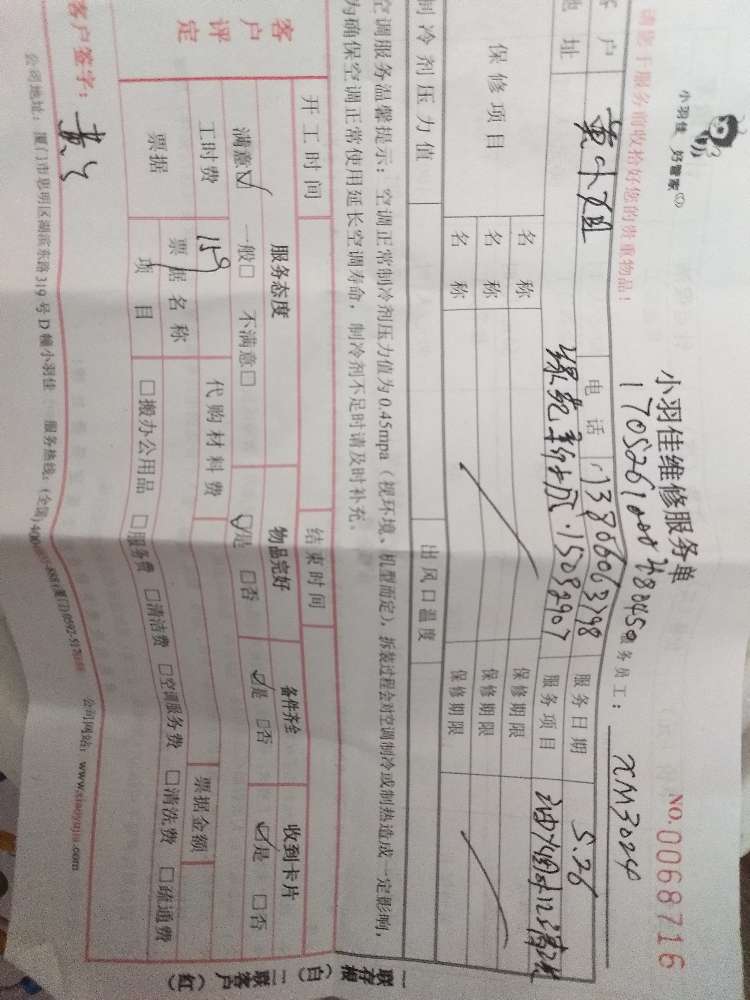 小羽佳 好管家
小羽佳维修服务单
NO.0068716
请您于服务前收拾好您的贵重物品！
服务员工： XM3024
客户 黄小姐 电话 13806063798 服务日期 5.26
地址 服务项目
保修项目 名称 保修期限
名称 保修期限
名称 保修期限
制冷剂压力值 出风口温度
空调服务温馨提示：空调正常制冷剂压力值为0.45mpa（视环境、机型而定），拆装过程会对空调制冷或制热造成一定影响，
为确保空调正常使用延长空调寿命，制冷剂不足时请及时补充。
开工时间 结束时间
客户评定 服务态度 物品完好 备件齐全 收到卡片
满意☑ 一般□ 不满意□ ☑是 □否 ☑是 □否 ☑是 □否
工时费 159 代购材料费
票据 票据名称 票据金额
项目 □搬办公用品 □服务费 □清洁费 □空调服务费 □清洗费 □疏通费
客户签字：
公司地址：厦门市思明区湖滨东路319号D幢小羽佳 服务热线：(全国)400 公司网站：www.xiaoyujia.com
一联存根（白） 二联客户（红）